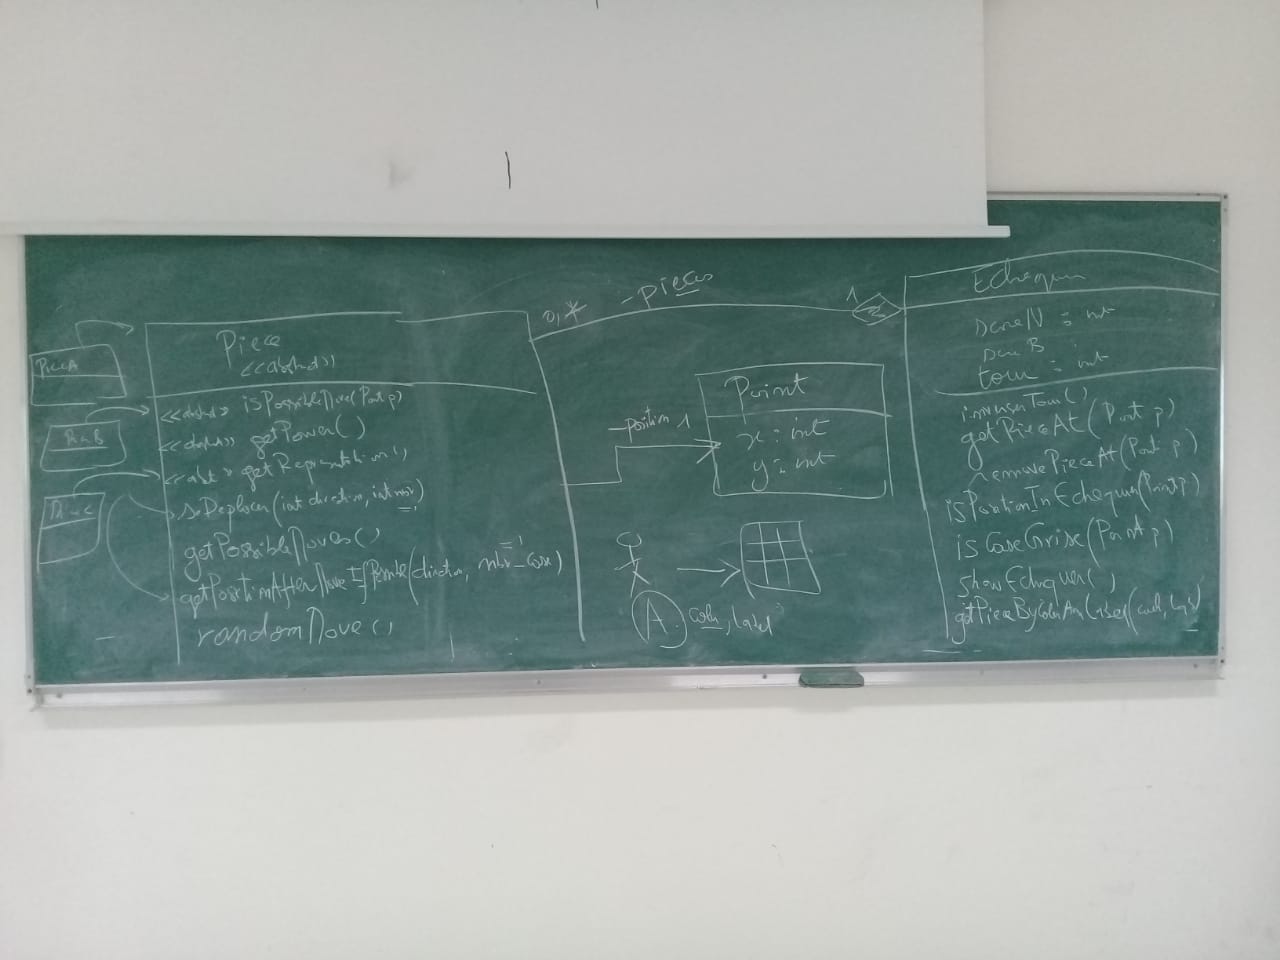 PieceA
Piece
<<abstract>>
<<abstract>> isPossibleMove(Point p)
<<abstract>> getPower()
<<abst>> getRepresentation()
seDeplacer(int direction, int nbr)
getPossibleMoves()
getPositionAfterMoveIfPossible(direction, nbr_case)
randomMove()
0,*
- pieces
1
- position 1
Point
x : int
y : int
A
color, label
Echequier
scoreN : int
score B
tour : int
inverserTour()
getPieceAt(Point p)
removePieceAt(Point p)
isPositionInEchequier(Point p)
isCaseGrise(Point p)
showEchequier()